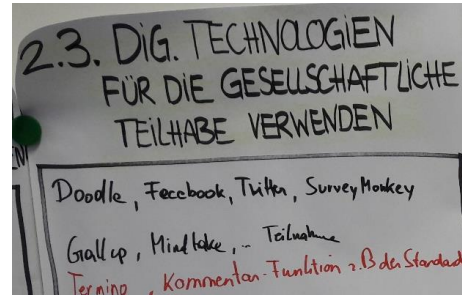 2.3. DIG. TECHNOLOGIEN
FÜR DIE GESELLSCHAFTLICHE
TEILHABE VERWENDEN
Doodle, Facebook, Twitter, SurveyMonkey
Gallup, Mindtake, .. Teilnahme
Termino, Kommentar-Funktion z.B der Standard